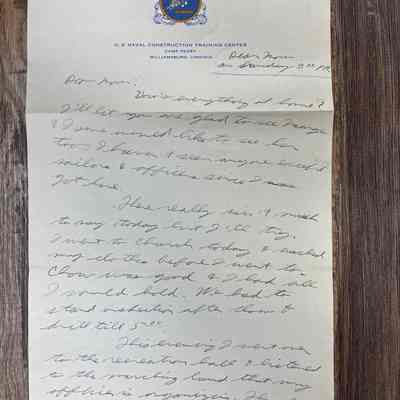 U. S. NAVAL CONSTRUCTION TRAINING CENTER
CAMP PEARY
WILLIAMSBURG, VIRGINIA
Dear Mom
on Sunday
Dear Mom:
How's everything at home?
I'll bet you are glad to see
& I sure would like to see her
too. I haven't seen anyone except
sailors & officers since I was
got here.
There really isn't much
to say today but I'll try.
I went to Church today & washed
my clothes before I went to.
Chow was good & I had all
I could hold. We had to
stand inspection after chow &
drill till
This evening I went over
to the recreation hall & listened
to the marching band that my
officer is organizing. The